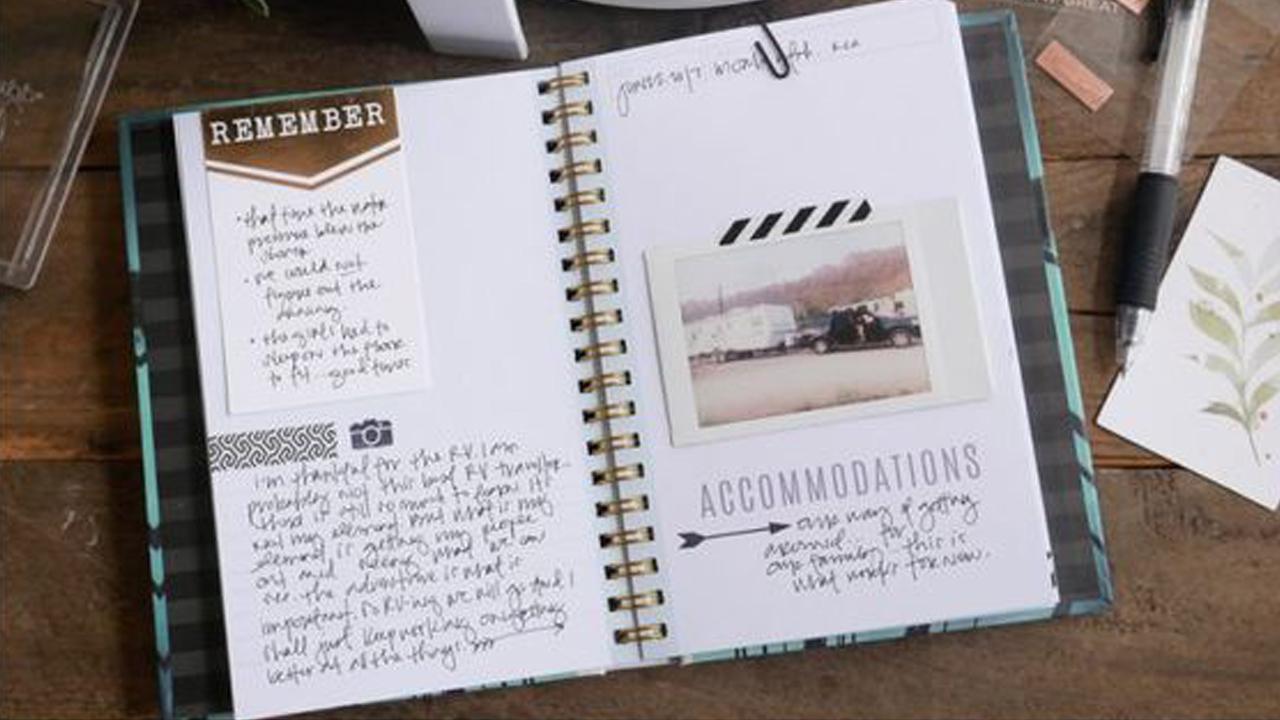 REMEMBER
• that time the water
pressure blew the
• we could not
figure out the
• the girls had to
sleep on the floor
to fit - good times
I'm thankful for the RV. I am
probably not the best RV
I find it still so much to know. it's
not my element but what is my
element is getting my people
out and seeing what we can
see. the adventure is what is
important. so RV-ing we will go and I
shall just keep working on getting
better at all the things.
ACCOMMODATIONS
our way of getting
around for
our family. this is
what works for now.
GREAT